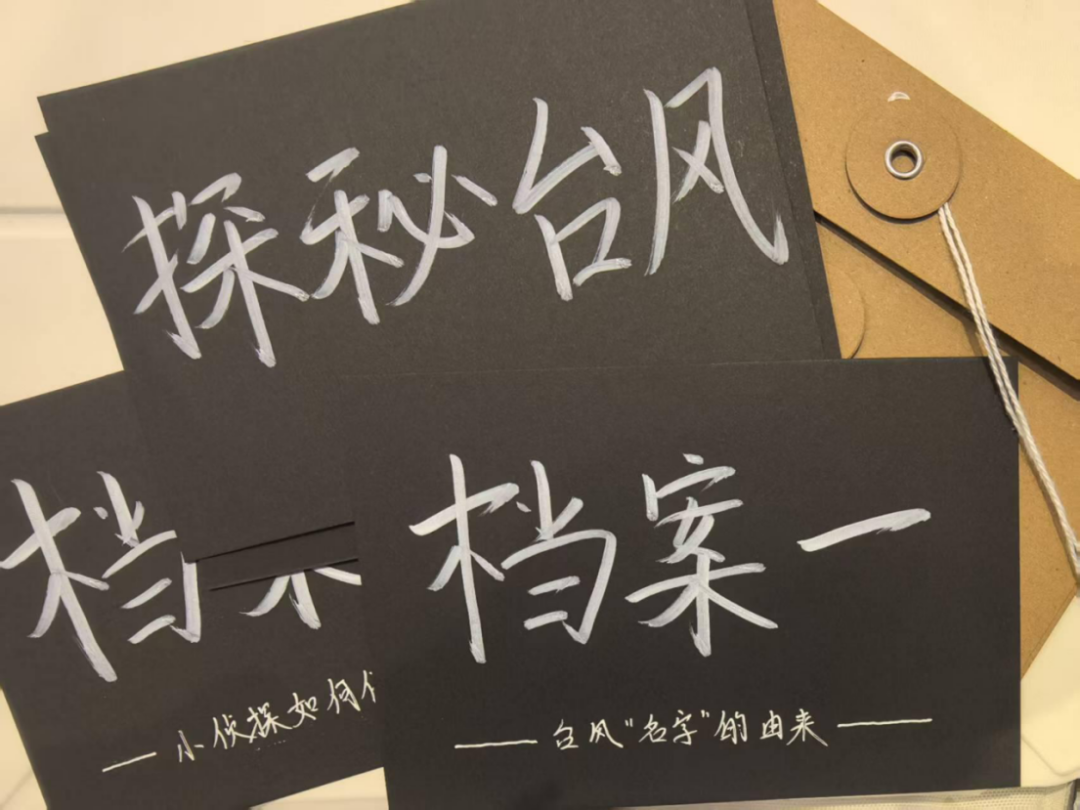 探秘台风
档案一
——台风“名字”的由来——
档案
——小侦探如何